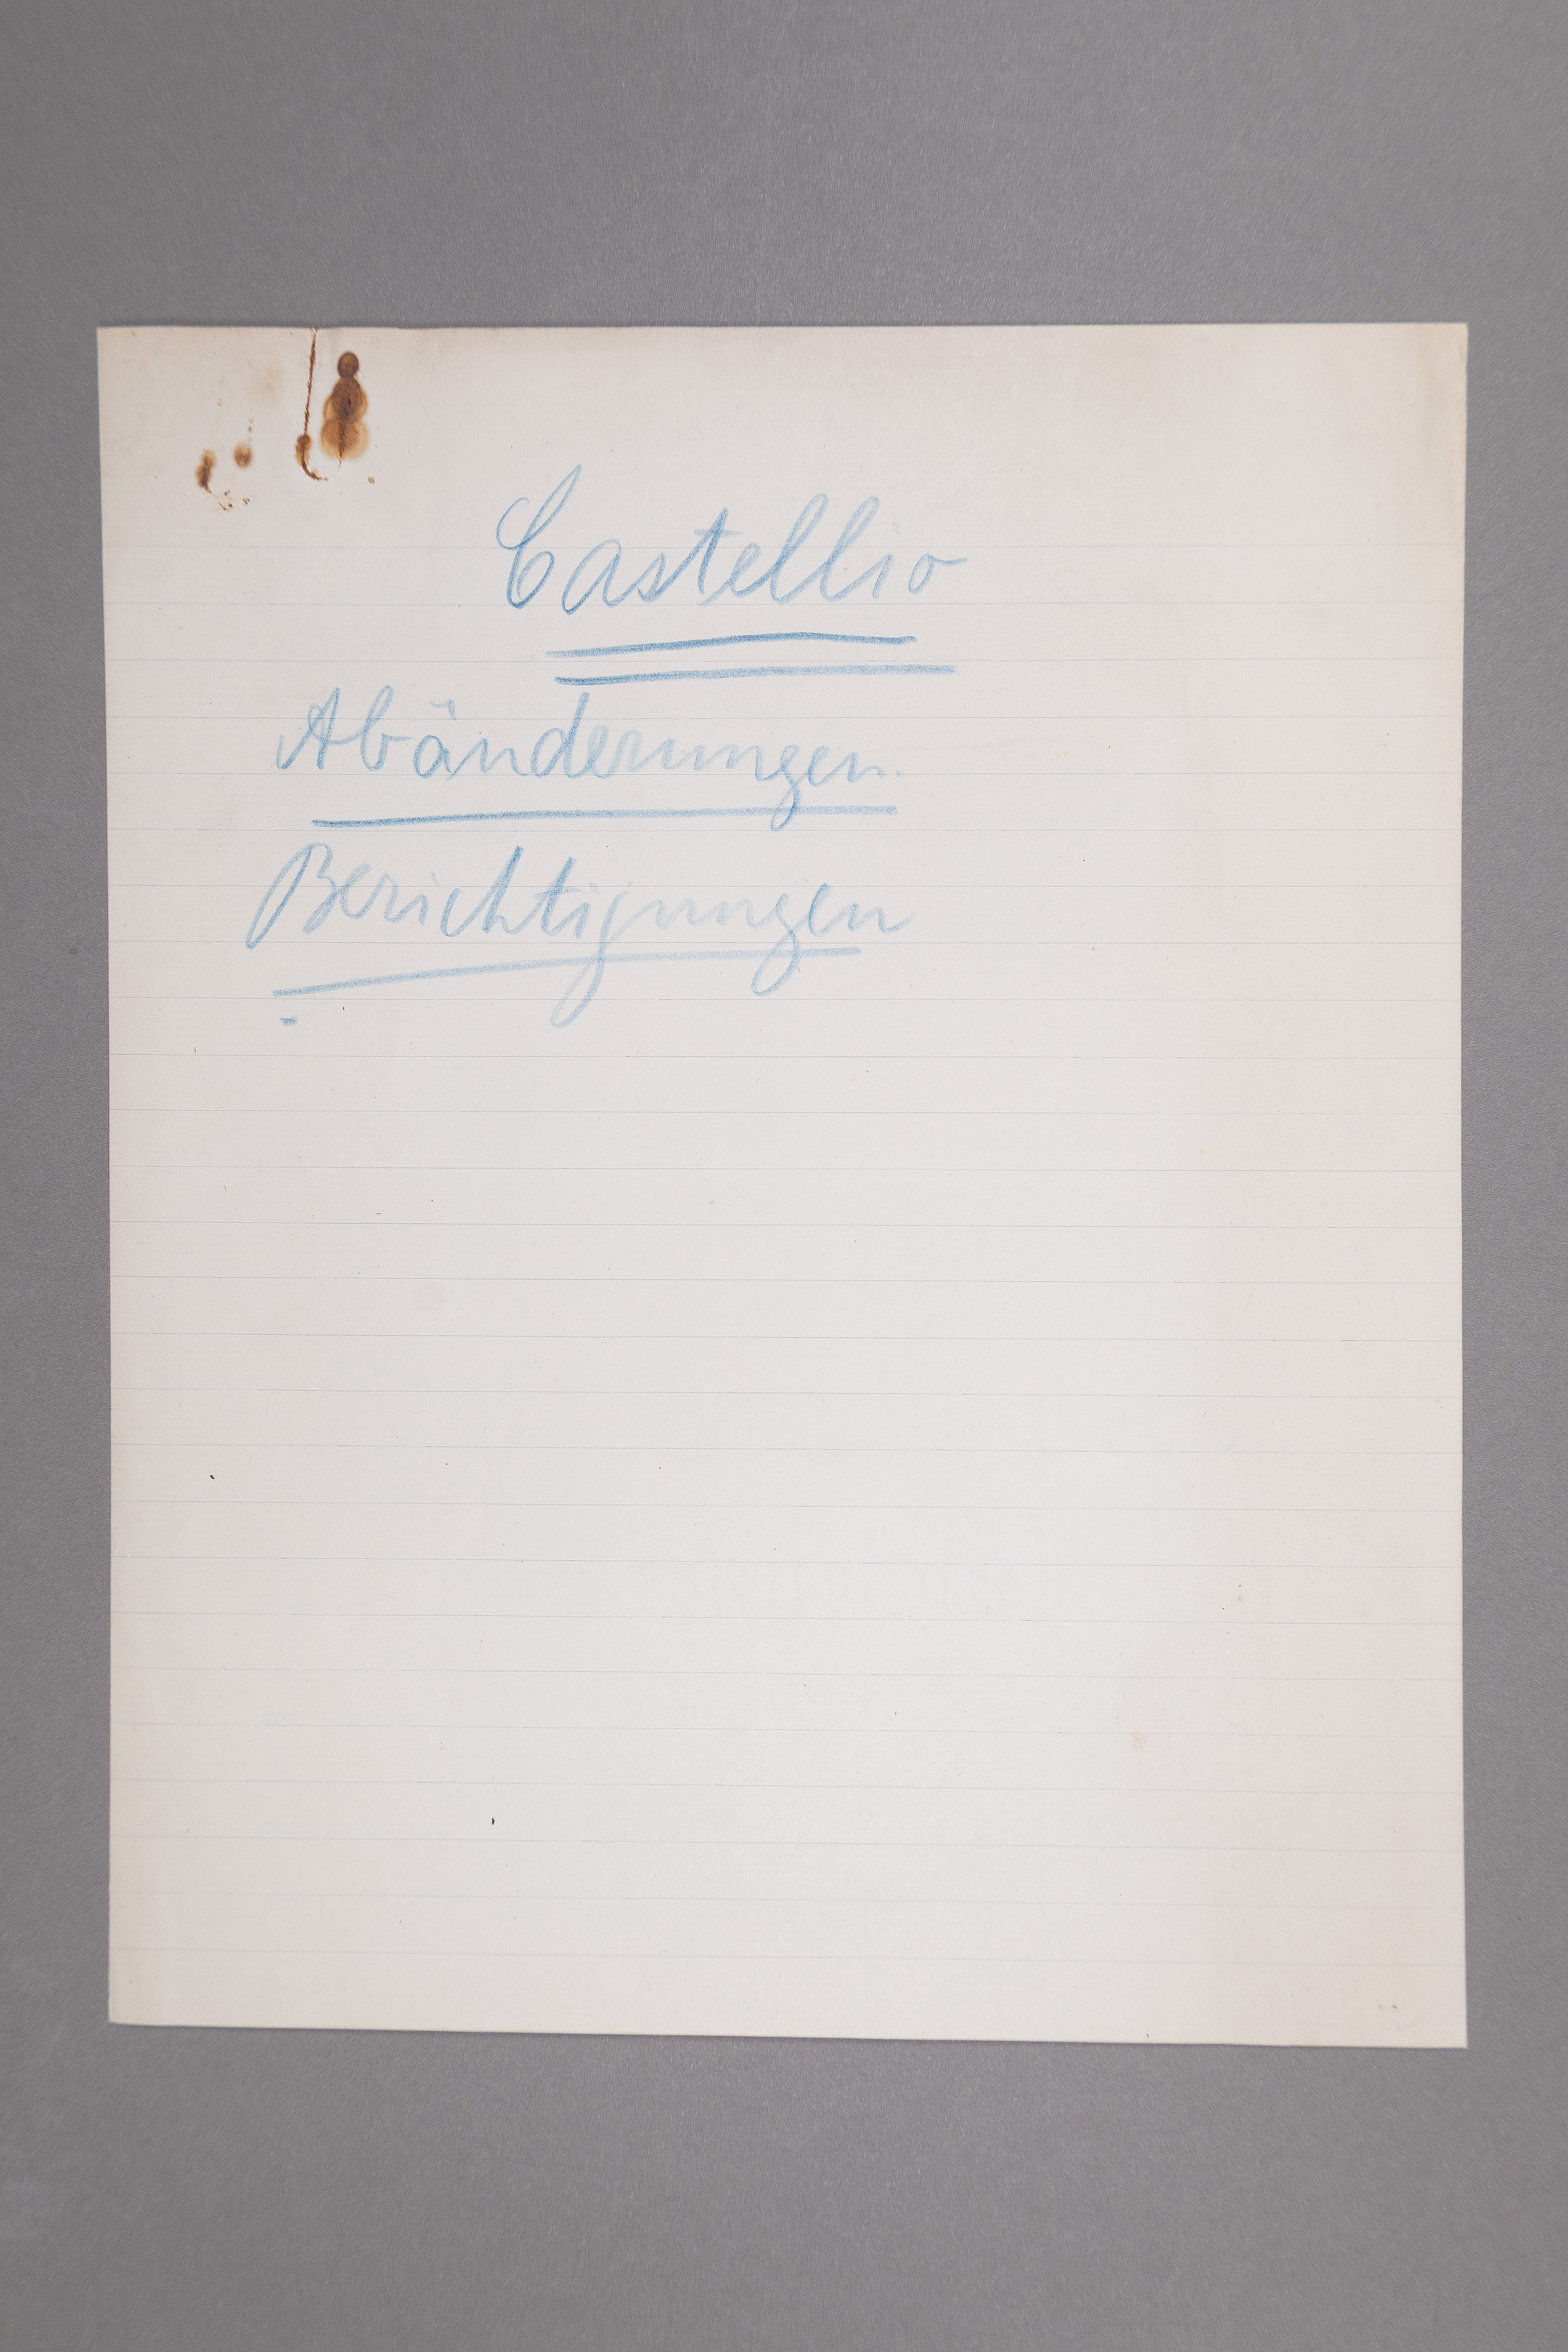 Castellio
Abänderungen
Berichtigungen